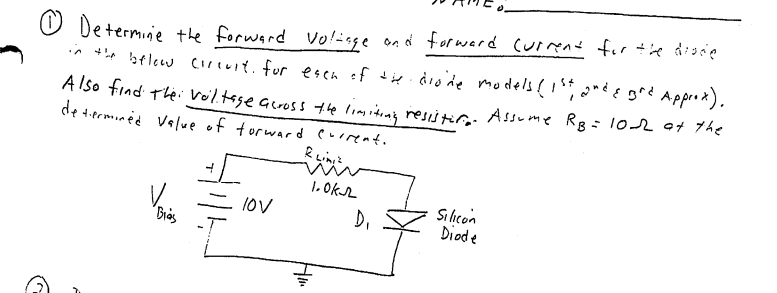 NAME:
① Determine the forward voltage and forward current for the diode
in the below circuit, for each of the diode models (1st, 2nd & 3rd Approx).
Also find the voltage across the limiting resistor. Assume RB = 10Ω at the
determined value of forward current.
R Limit
1.0kΩ
+
VBias
10V
-
D1
Silicon
Diode